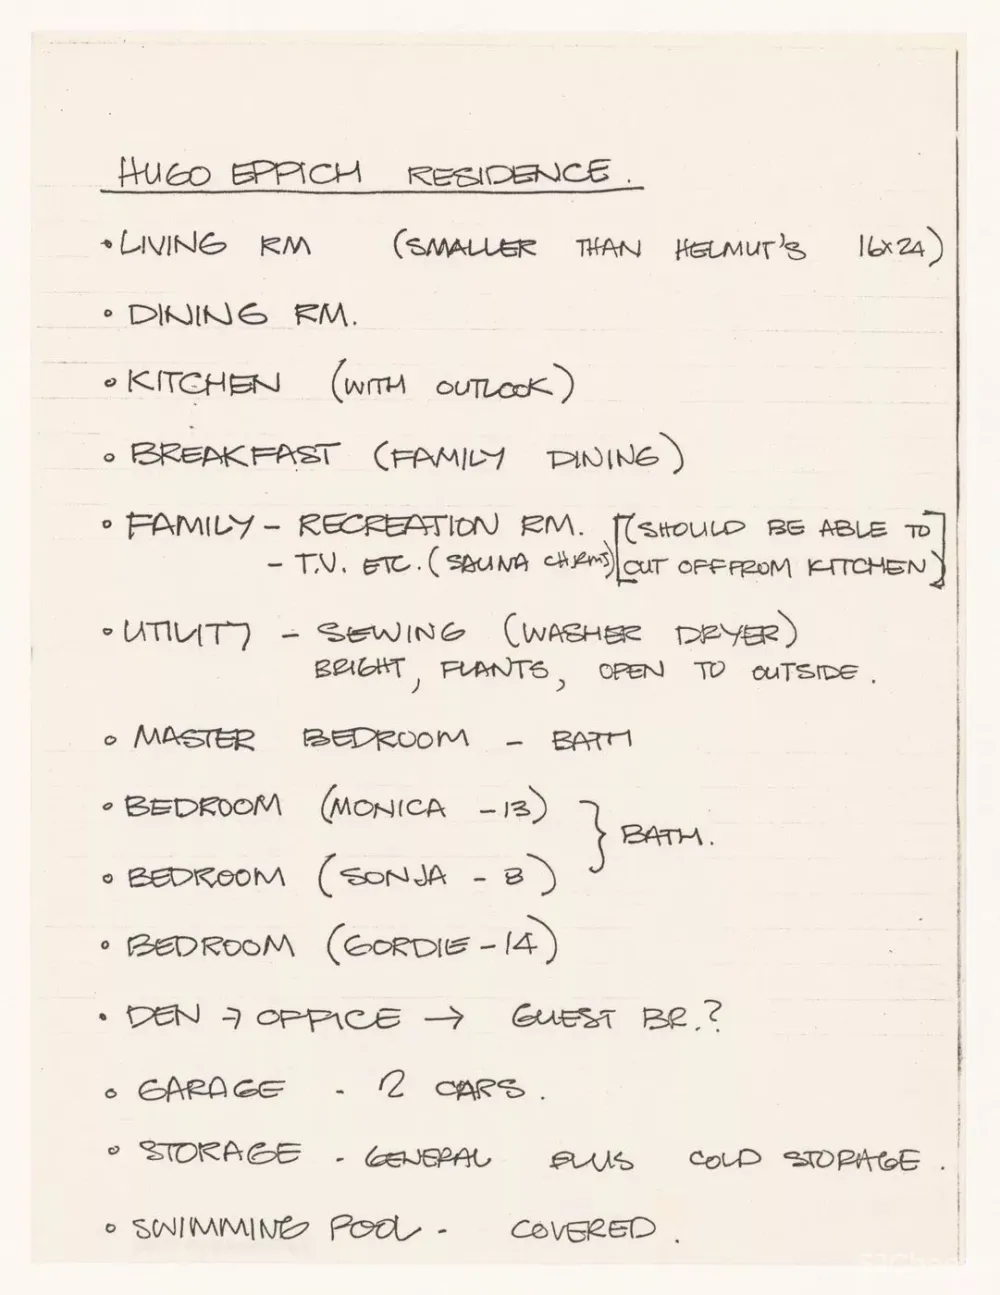 HUGO EPPICH RESIDENCE.
• LIVING RM (SMALLER THAN HELMUT'S 16x24)
• DINING RM.
• KITCHEN (WITH OUTLOOK)
• BREAKFAST (FAMILY DINING)
• FAMILY - RECREATION RM. [(SHOULD BE ABLE TO
- T.V. ETC. (SAUNA CH.RMS) CUT OFF FROM KITCHEN)]
• UTILITY - SEWING (WASHER DRYER)
BRIGHT, PLANTS, OPEN TO OUTSIDE.
• MASTER BEDROOM - BATH
• BEDROOM (MONICA - 13)
} BATH.
• BEDROOM (SONJA - 8)
• BEDROOM (GORDIE - 14)
• DEN → OFFICE → GUEST BR.?
• GARAGE - 2 CARS.
• STORAGE - GENERAL PLUS COLD STORAGE.
• SWIMMING POOL - COVERED.